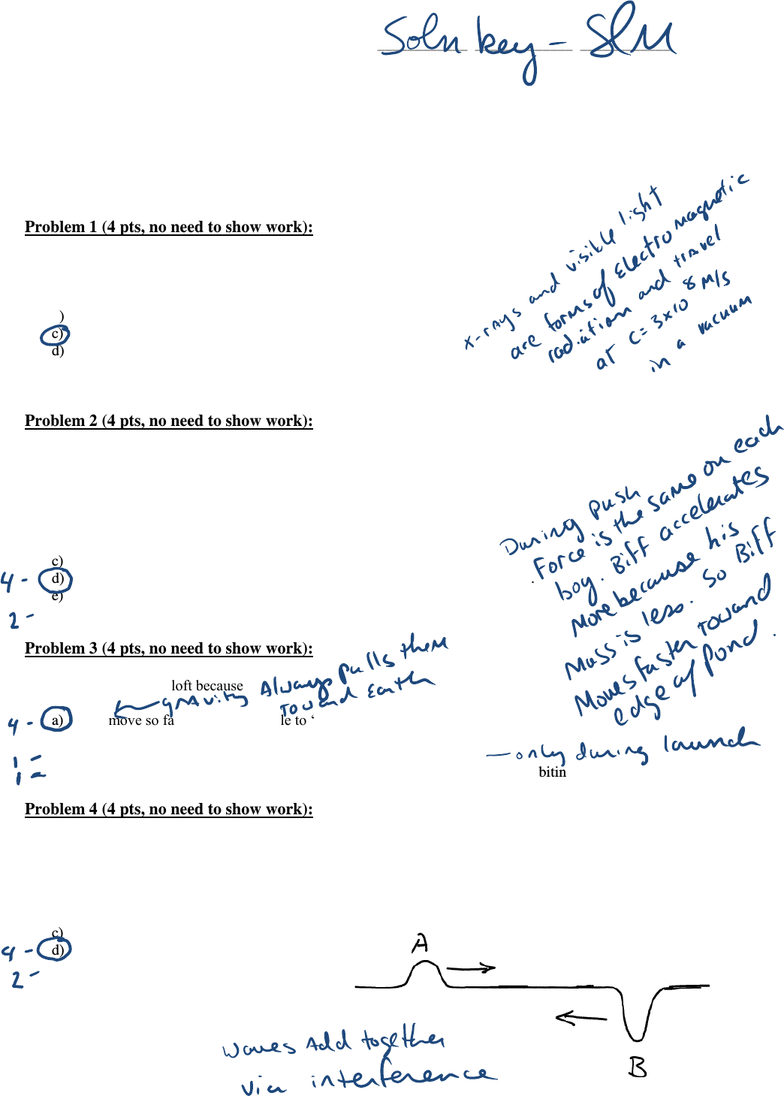 Soln key - SLM
Problem 1 (4 pts, no need to show work):
x-rays and visible light
are forms of electromagnetic
radiation and travel
at c = 3x10 8 m/s
in a vacuum
)
c)
d)
Problem 2 (4 pts, no need to show work):
During push
Force is the same on each
boy. Biff accelerates
More because his
Mass is less. So Biff
Moves faster toward
edge of Pond.
c)
4 - d)
e)
2 -
Problem 3 (4 pts, no need to show work):
loft because
gravity Always pulls them
Toward Earth
4 - a) move so fa le to
1 -
1 -
- only during launch
bitin
Problem 4 (4 pts, no need to show work):
c)
4 - d)
2 -
A
B
waves Add together
via interference